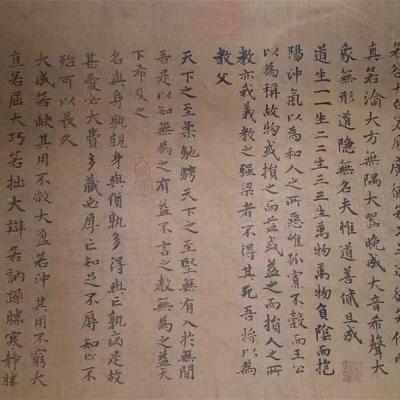 若谷大白若辱廣德若不足建德若
真若渝大方無隅大器晚成大音希聲大
象無形道隱無名夫惟道善貸且成
道生一一生二二生三三生萬物萬物負陰而抱
陽沖氣以為和人之所惡惟孤寡不穀而王公
以為稱故物或損之而益或益之而損人之所
教亦我義教之強梁者不得其死吾將以為
教父
天下之至柔馳騁天下之至堅無有入於無間
吾是以知無為之有益不言之教無為之益天
下希及之
名與身孰親身與貨孰多得與亡孰病是故
甚愛必大費多藏必厚亡知足不辱知止不
殆可以長久
大成若缺其用不敝大盈若沖其用不窮大
直若屈大巧若拙大辯若訥躁勝寒靜勝